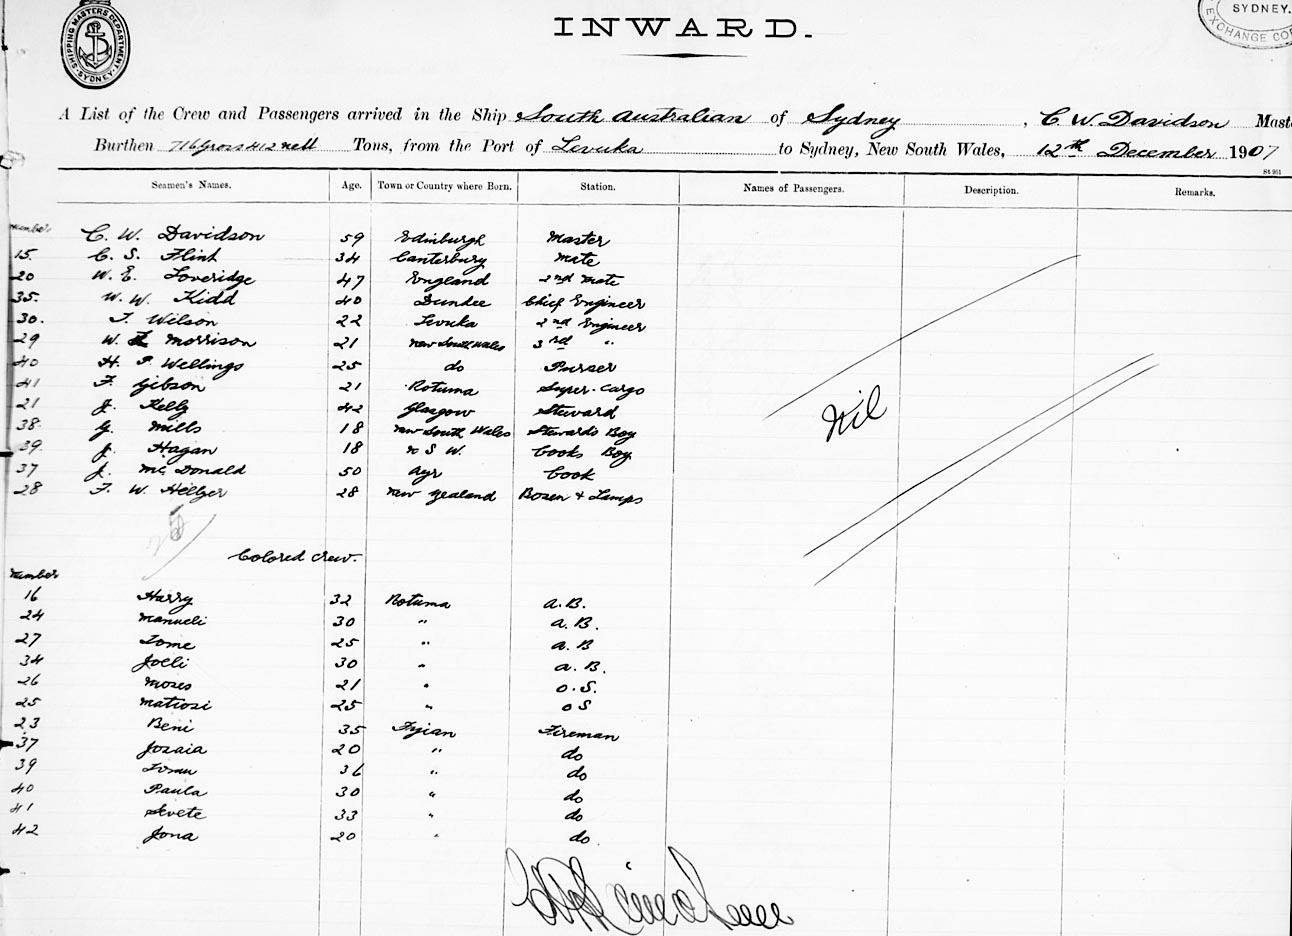 SHIPPING MASTERS DEPARTMENT. SYDNEY.
SYDNEY.
EXCHANGE
INWARD.
A List of the Crew and Passengers arrived in the Ship South Australian of Sydney, C W Davidson Mast
Burthen 716 Gross 412 nett Tons, from the Port of Levuka to Sydney, New South Wales, 12th December 1907
St 951
Seamen's Names. Age. Town or Country where Born. Station. Names of Passengers. Description. Remarks.
number
C. W. Davidson 59 Edinburgh Master
15. C. S. Flint 34 Canterbury Mate
20 W. E. Loveridge 47 England 2nd Mate
35. W. W. Kidd 40 Dundee Chief Engineer
30. T. Wilson 22 Levuka 2nd Engineer
29 W. Morrison 21 New South Wales 3rd "
40 H. P. Wellings 25 do Purser
41 F. Gibson 21 Rotuma Super-Cargo
21 J. Kelly 42 Glasgow Steward
38. G. Mills 18 New South Wales Stewards Boy
39. J. Hagan 18 N S W. Cooks Boy
37 J. McDonald 50 Ayr Cook
28 F. W. Hellyer 28 New Zealand Bosen & Lamps
Nil
Colored Crew.
number
16 Harry 32 Rotuma A.B.
24 Manueli 30 " A.B.
27 Tome 25 " A.B
34 Joeli 30 " A.B.
26 Moses 21 " O.S.
25 Matiosi 25 " O S
23 Beni 35 Fijian Fireman
37 Josaia 20 " do
39 Tomu 36 " do
40 Paula 30 " do
41 Sevete 33 " do
42 Jona 20 " do